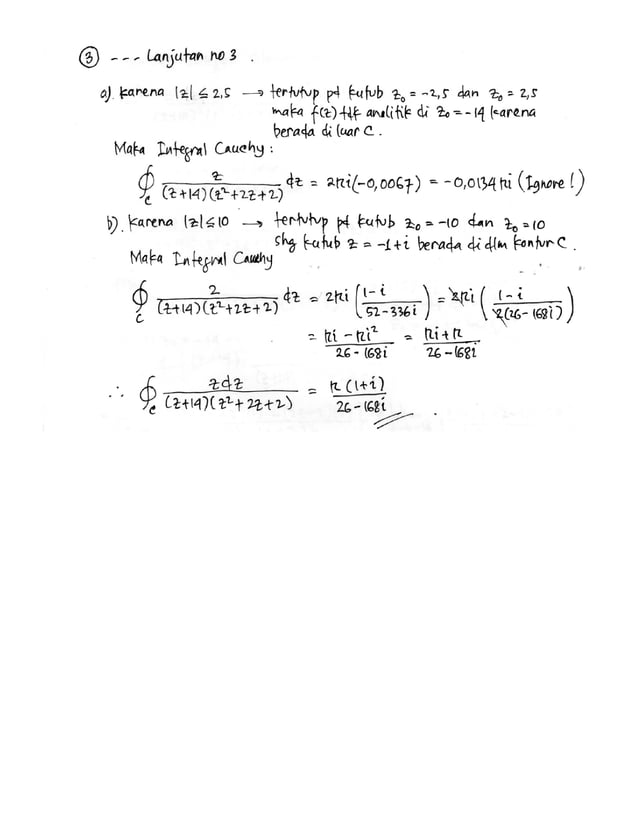 ③ --- Lanjutan no 3 .
a). Karena |z| ≤ 2,5 → tertutup pd kutub z₀ = -2,5 dan z₀ = 2,5
maka f(z) tdk analitik di z₀ = -14 karena
berada di luar C .
Maka Integral Cauchy :
∮_c z/((z+14)(z²+2z+2)) dz = 2πi(-0,0067) = -0,0134 πi (Ignore !)
b). Karena |z| ≤ 10 → tertutup pd kutub z₀ = -10 dan z₀ = 10
shg kutub z = -1+i berada di dlm kontur C .
Maka Integral Cauchy
∮_c 2/((z+14)(z²+2z+2)) dz = 2πi ((1-i)/(52-336i)) = 2πi ((1-i)/(2(26-168i)))
= (πi - πi²)/(26-168i) = (πi+π)/(26-168i)
∴ ∮_c zdz/((z+14)(z²+2z+2)) = π(1+i)/(26-168i) .